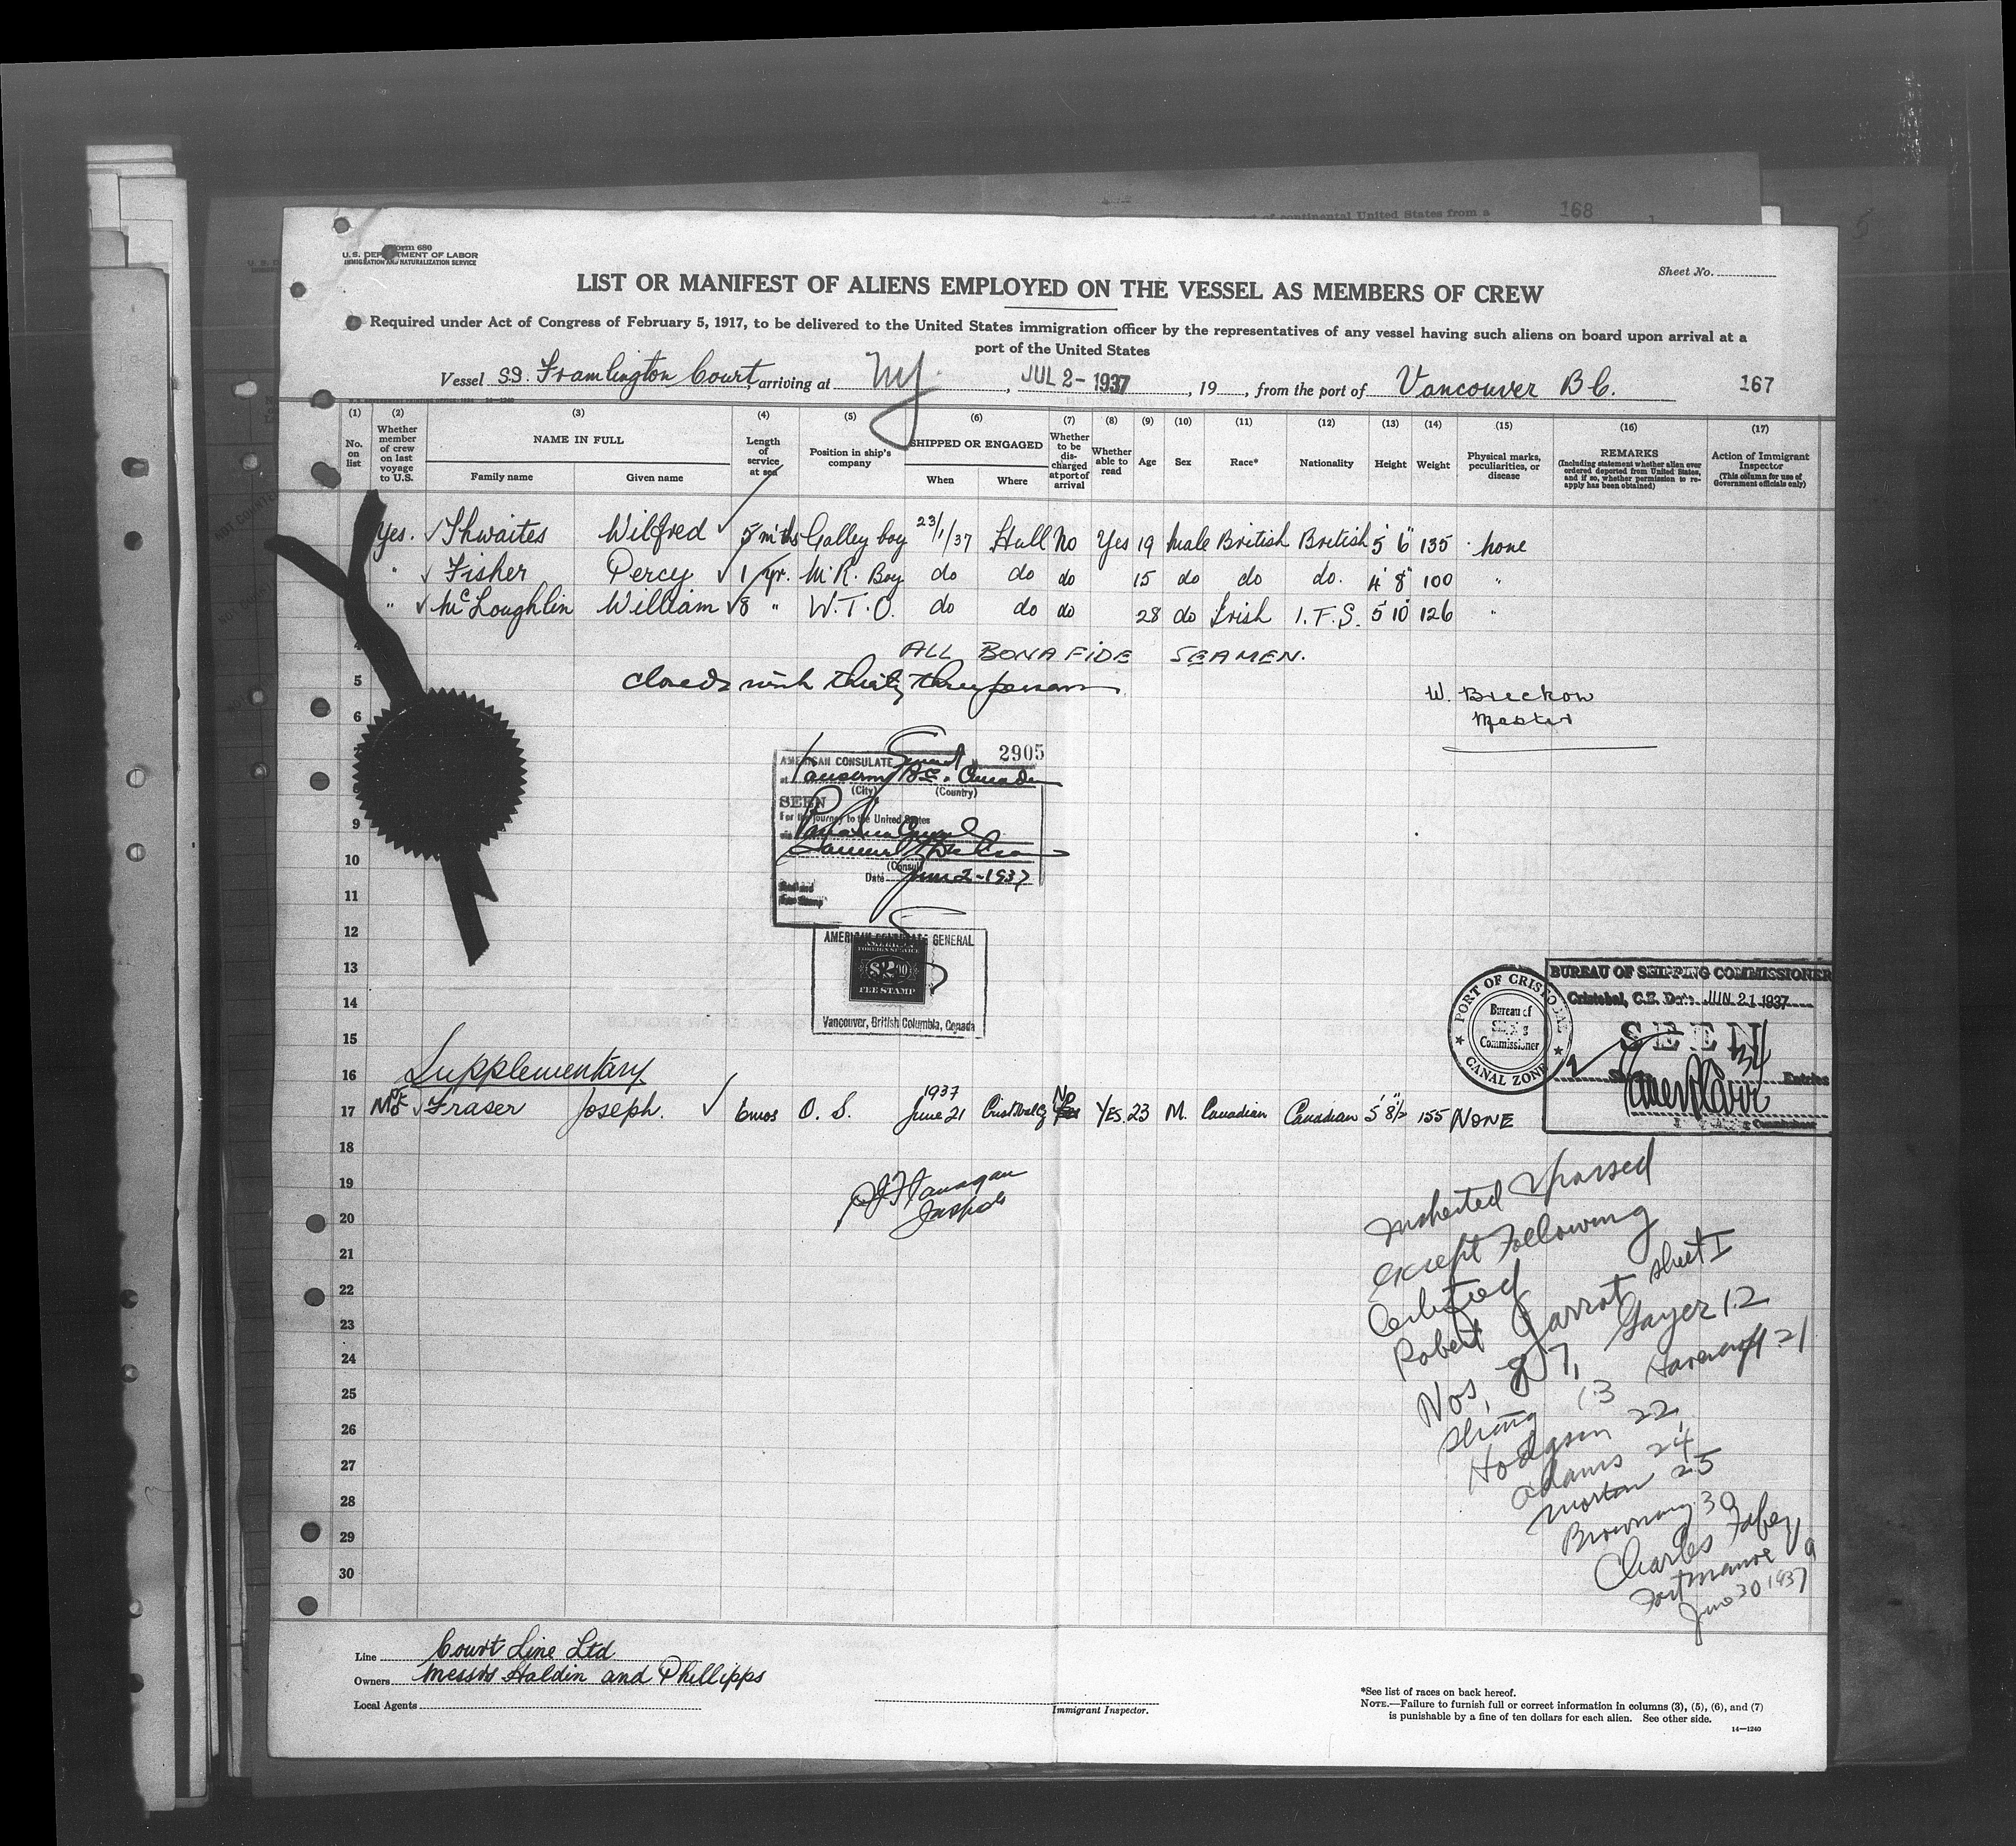 168
Form 680
U.S. DEPARTMENT OF LABOR
IMMIGRATION AND NATURALIZATION SERVICE
Sheet No.
LIST OR MANIFEST OF ALIENS EMPLOYED ON THE VESSEL AS MEMBERS OF CREW
Required under Act of Congress of February 5, 1917, to be delivered to the United States immigration officer by the representatives of any vessel having such aliens on board upon arrival at a
port of the United States
Vessel SS. Framlington Court, arriving at NY, JUL 2 - 1937, 19, from the port of Vancouver B C. 167
(1) (2) (3) (4) (5) (6) (7) (8) (9) (10) (11) (12) (13) (14) (15) (16) (17)
No. on list
Whether member of crew on last voyage to U.S.
NAME IN FULL
Family name Given name
Length of service at sea
Position in ship's company
SHIPPED OR ENGAGED
When Where
Whether to be discharged at port of arrival
Whether able to read
Age
Sex
Race*
Nationality
Height
Weight
Physical marks, peculiarities, or disease
REMARKS
(Including statement whether alien ever ordered deported from United States, and if so, whether permission to reapply has been obtained)
Action of Immigrant Inspector
(This column for use of Government officials only)
Yes. Thwaites Wilfred 5 mths Galley boy 23/1/37 Hull No Yes 19 Male British British 5' 6" 135 none
" Fisher Percy 1 yr. M.R. Boy do do do 15 do do do. 4' 8" 100 "
" McLoughlin William 8 " W.T.O. do do do 28 do Irish I.F.S. 5 10 126 "
4 ALL BONA FIDE SEAMEN.
closed with thirty three persons
5
W. Breckow
6
Master
2905
AMERICAN CONSULATE General
at Vancouver, B.C. Canada
(City) (Country)
SEEN
For the journey to the United States
via Panama Canal
9
10
(Consul)
Date June 2-1937
11
12
AMERICAN CONSULATE GENERAL
AMERICAN
FOREIGN SERVICE
$2.00
FEE STAMP
Vancouver, British Columbia, Canada
13
14
15
PORT OF CRISTOBAL
Bureau of
Shipping
Commissioner
CANAL ZONE
BUREAU OF SHIPPING COMMISSIONER
Cristobal, C.Z. Date JUN 21 1937
SEEN
34 Entries
Commissioner
16 Supplementary
17 No Fraser Joseph. 6mos O. S. 1937 June 21 Cristobal CZ No YES. 23 M. Canadian Canadian 5' 8½" 155 NONE
18
19
20
21
22
23
24
25
26
27
28
29
30
P J Flanagan
Inspected & passed
except Following
Certified
Robert Jarrot sheet I
Nos, 7, Gayer 12
13 Havercroft 21
Hodgson 22,
Adams 24
Morton 25
Browning 30
Charles
June 30 1937
Line Court Line Ltd
Owners Messrs Haldin and Phillipps
Local Agents
Immigrant Inspector.
*See list of races on back hereof.
NOTE.—Failure to furnish full or correct information in columns (3), (5), (6), and (7)
is punishable by a fine of ten dollars for each alien. See other side.
14—1240